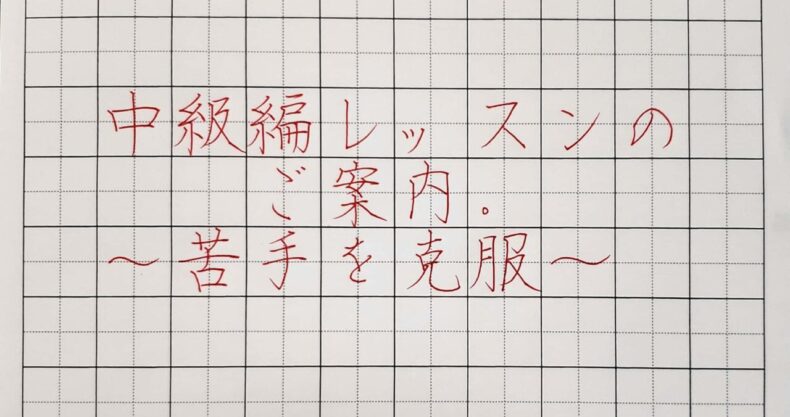 中級編レッスンの
ご案内。
～苦手を克服～